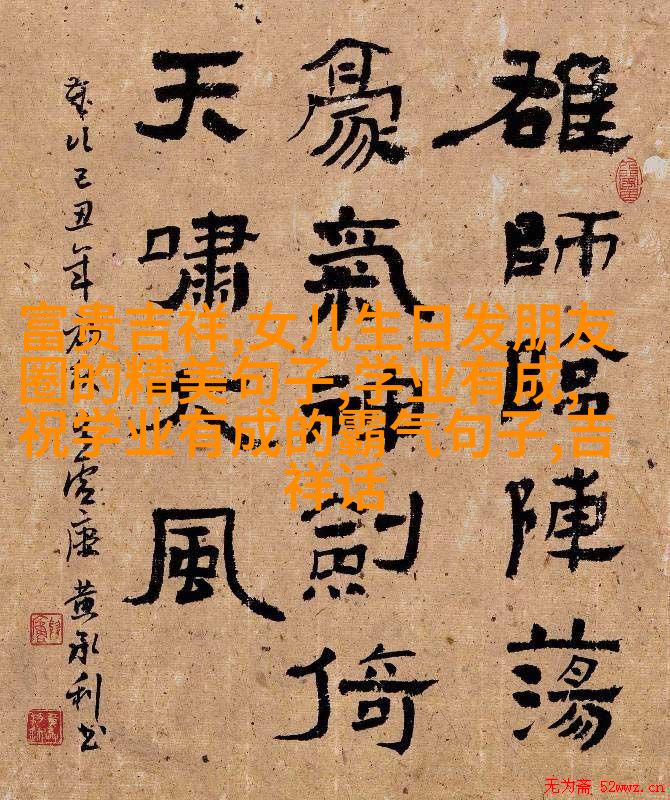 雄師臨陣蕩
豪氣劍倚
天嘯大風
歲次己丑年 黄承利书
富贵吉祥,女儿生日发朋友
圈的精美句子,学业有成,
祝学业有成的霸气句子,吉
祥话
无为斋 52wwz.cn